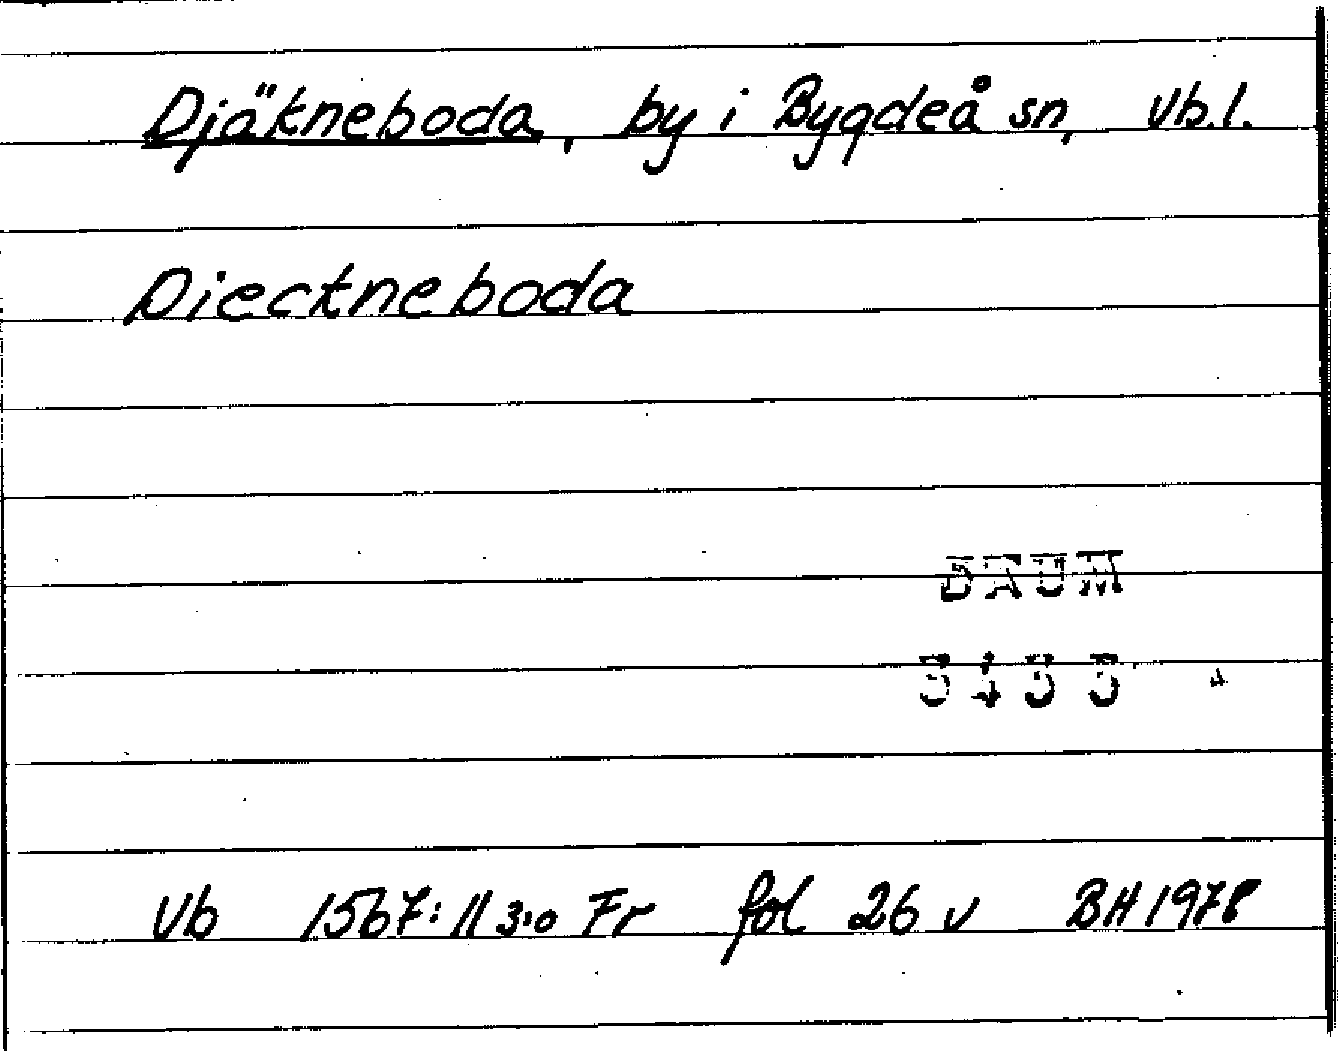 Djäkneboda, by i Bygdeå sn, Vb.l.
Dieckneboda
DAUM
Vb 1567:11 3:o Fr fol 26 v BH 1978